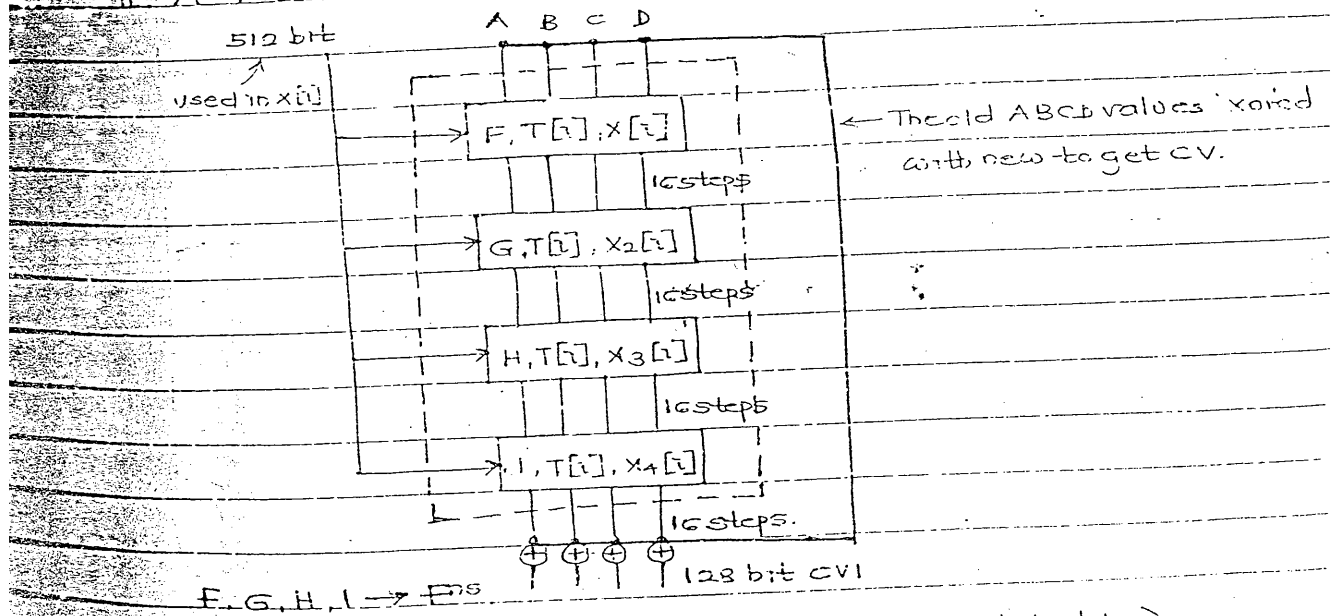 A B C D
512 bit
used in X[i]
F, T[i], X[i]
← The old ABCD values xored
with new to get CV.
16 steps
G, T[i], X2[i]
16 steps
H, T[i], X3[i]
16 steps
I, T[i], X4[i]
16 steps.
128 bit CV1
F, G, H, I → Fns